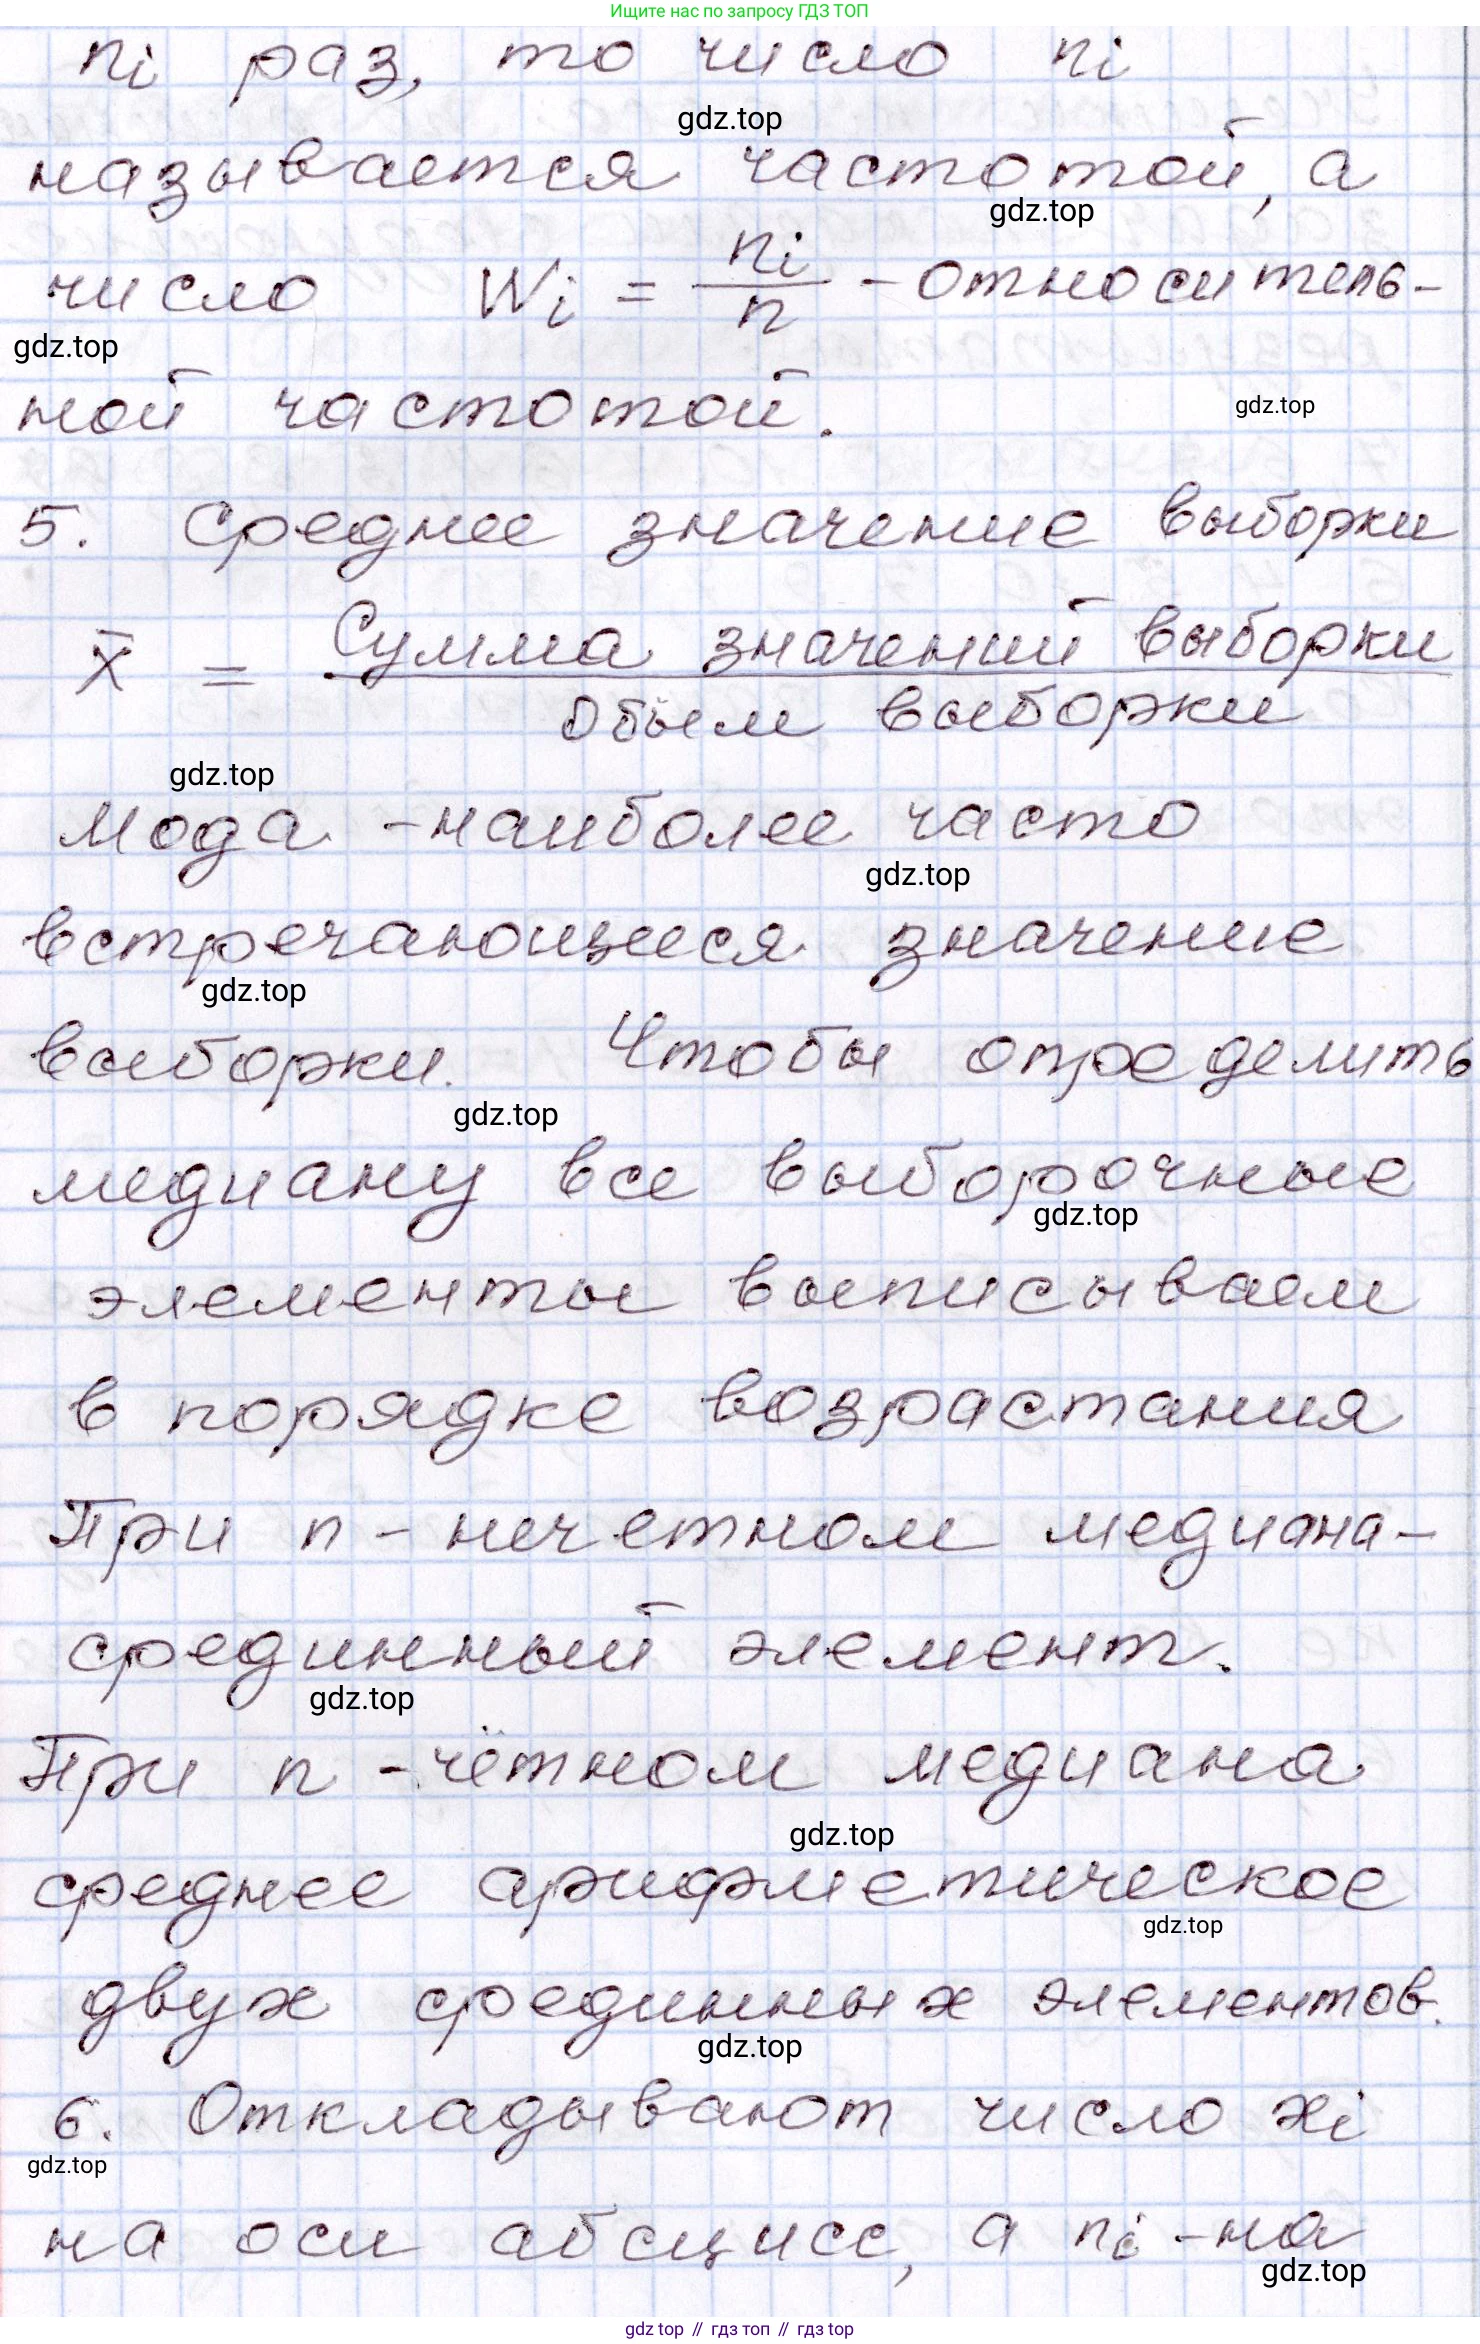 Ищите нас по запросу ГДЗ ТОП
ni раз, то число ni
gdz.top
называется частотой, а
gdz.top
число Wi = ni/n - относитель-
gdz.top
ной частотой.
gdz.top
5. Среднее значение выборки
x̄ = Сумма значений выборки / Объем выборки
gdz.top
Мода - наиболее часто
gdz.top
встречающиеся значение
gdz.top
выборки. Чтобы определить
gdz.top
медиану все выборочные
gdz.top
элементы выписываем
в порядке возрастания
При n - нечетном медиана -
срединный элемент.
gdz.top
При n - чётном медиана
gdz.top
среднее арифметическое
gdz.top
двух срединных элементов.
gdz.top
6. Откладывают число xi
gdz.top
на оси абсцисс, а ni - на
gdz.top
gdz top // гдз топ // гдз top